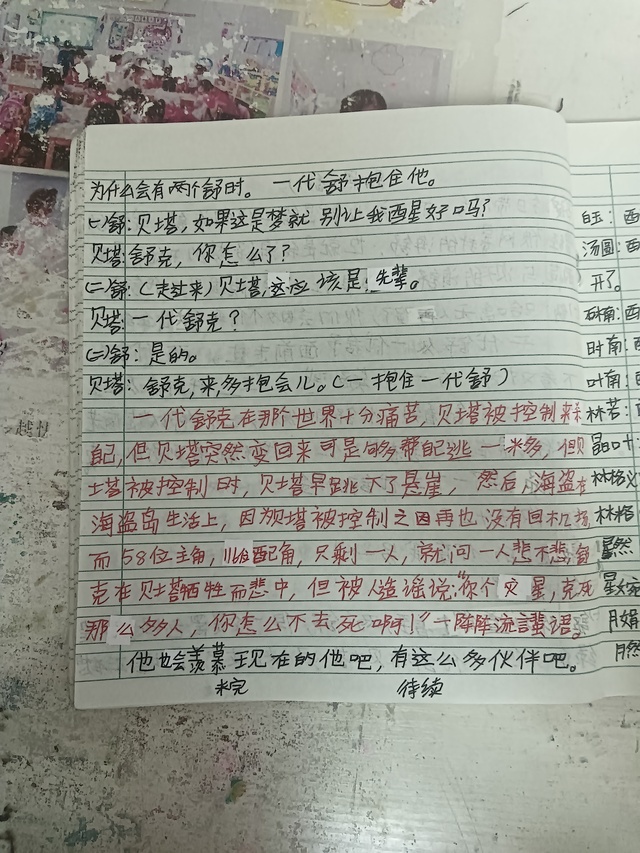 为什么会有两个舒时。一代舒抱住他。
(一)舒:贝塔,如果这是梦就别让我酉星好吗?
贝塔:舒克,你怎么了?
(二)舒:(走过来)贝塔,这应该是,先辈。
贝塔:一代舒克?
(二)舒:是的。
贝塔:舒克,来,多抱会儿。(一抱住一代舒)
一代舒克在那个世界十分痛苦,贝塔被控制来杀
自己,但贝塔突然变回来可是够帮自己逃一米多,但贝
塔被控制时,贝塔早跳下了悬崖,然后,海盗在
海盗岛生活上,因为贝塔被控制之因再也没有回机
而58位主角,配角,只剩一人,就问一人悲不悲,舒
克在贝塔牺牲而悲中,但被人造谣说:“你个灾星,克死
那么多人,你怎么不去死啊!”一阵阵流言蜚语。
他也会羡慕现在的他吧,有这么多伙伴吧。
未完 待续
白玉:西
汤圆:西
开了。
林南:西
时南:西
叶南:西
林若:
晶叶
林格义
林格
星然
星
月婧
月然